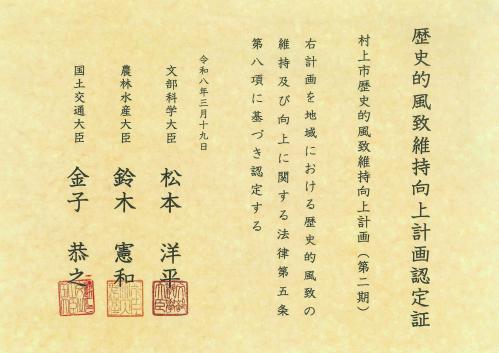 歴史的風致維持向上計画認定証
村上市歴史的風致維持向上計画(第二期)
右計画を地域における歴史的風致の
維持及び向上に関する法律第五条
第八項に基づき認定する
令和八年三月十九日
文部科学大臣 松本 洋平
農林水産大臣 鈴木 憲和
国土交通大臣 金子 恭之